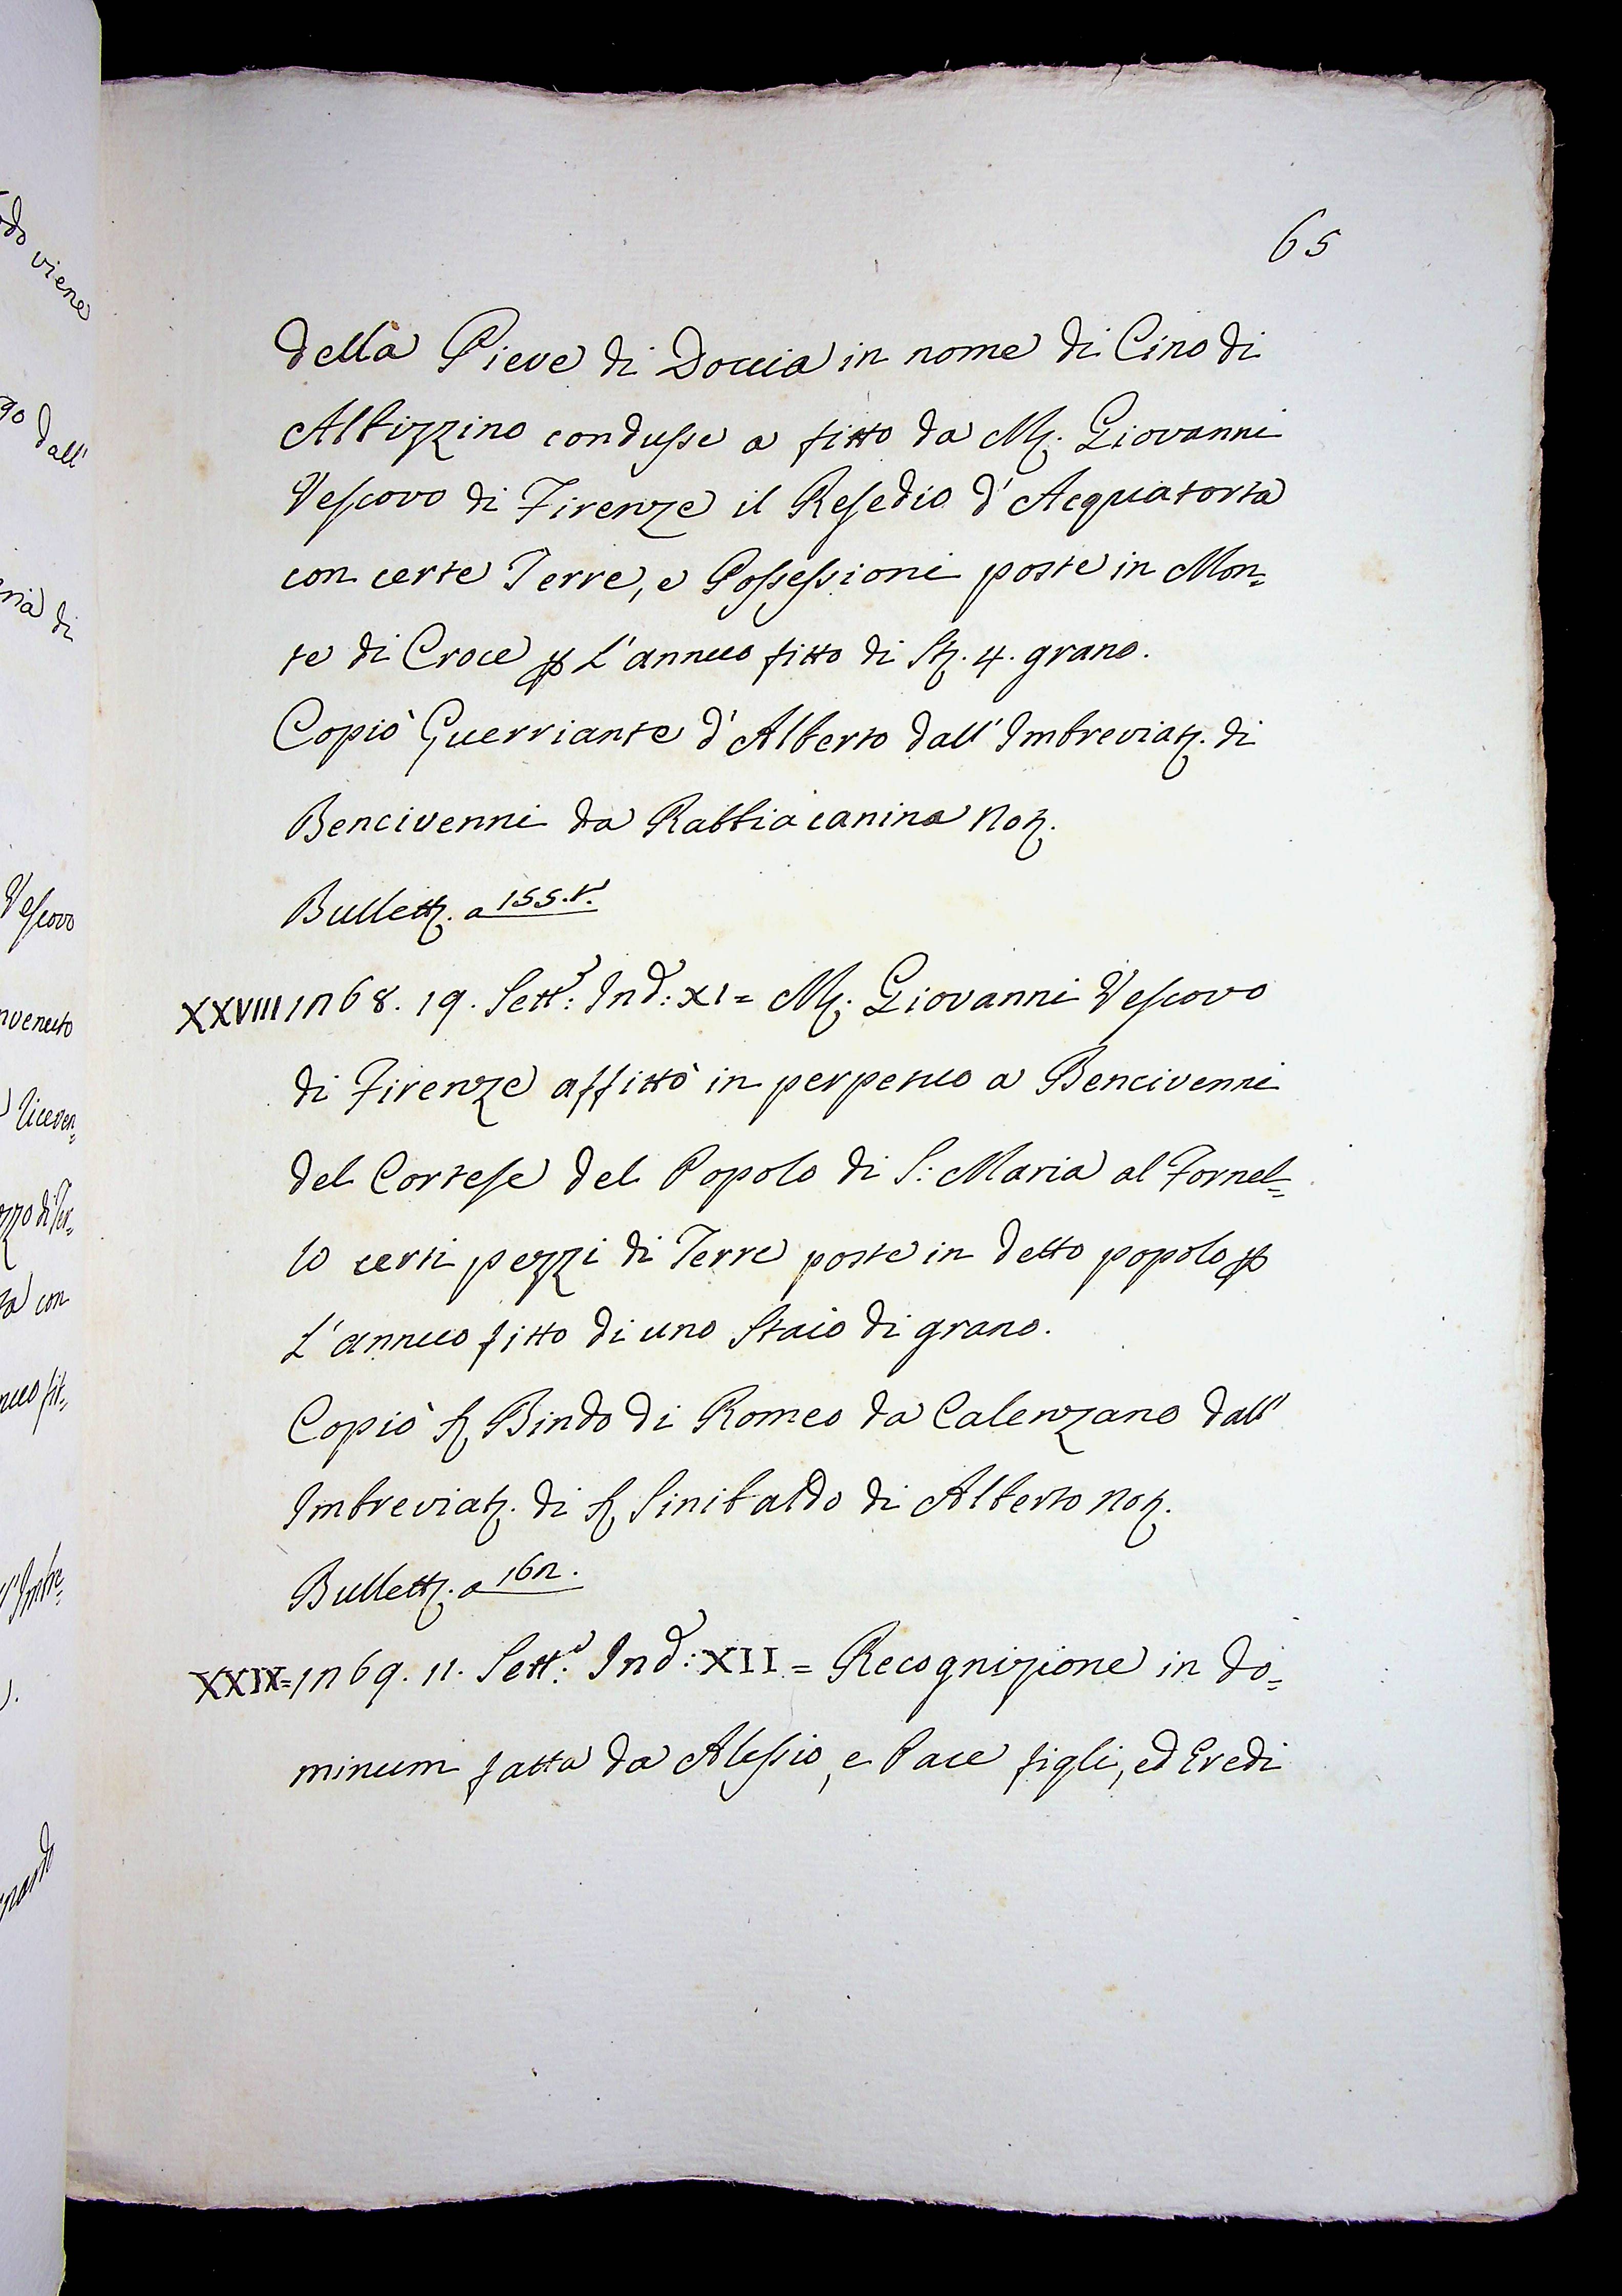 65
della Pieve di Doccia in nome di Cino di
Albizzino condusse a fitto da M. Giovanni
Vescovo di Firenze il Resedio d'Acquatorta
con certe Terre, e Possessioni poste in Mon=
te di Croce p L'annuo fitto di St. 4. grano.
Copiò Guerriante d'Alberto dall'Imbreviat. di
Bencivenni da Rabbiacanina Not.
Bullett. a 155.t.
XXVIII 1268. 19. Sett.e: Ind.: XI = M. Giovanni Vescovo
di Firenze affittò in perpetuo a Bencivenni
del Cortese del Popolo di S: Maria al Fornel=
lo certi pezzi di Terre poste in detto popolo p
L'annuo fitto di uno Staio di grano.
Copiò S. Bindo di Romeo da Calenzano dall'
Imbreviat. di S. Sinibaldo di Alberto not.
Bullett. a 162.
XXIX = 1269. 11. Sett.e: Ind.: XII = Recognizione in do=
minum fatta da Alessio, e Pace figli, ed Eredi
viene
dall'
di
Vescovo
con